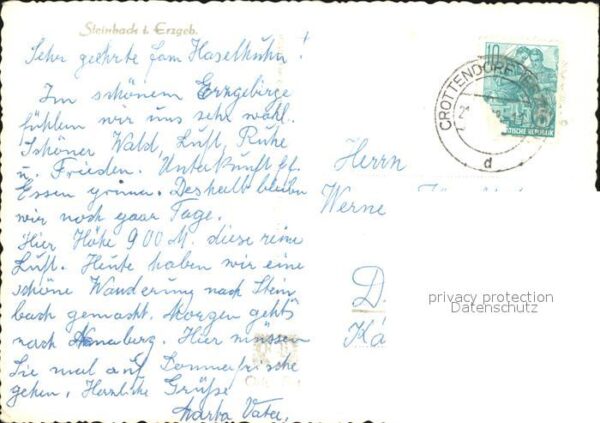 Steinbach i. Erzgeb.
Sehr geehrte Fam Haselhuhn!
Im schönem Erzgebirge
fühlen wir uns sehr wohl.
Schöner Wald, Luft, Ruhe
u. Frieden. Unterkunft u.
Essen prima. Deshalb bleiben
wir noch paar Tage.
Hier Höhe 900 M. diese reine
Luft. Heute haben wir eine
schöne Wanderung nach Stein
bach gemacht. Morgen gehts
nach Annaberg. Hier müssen
Sie mal auf Sommerfrische
gehen. Herzliche Grüße
Vater,
Herrn
Werne
D.
Ka
10
CROTTENDORF
d
privacy protection
Datenschutz